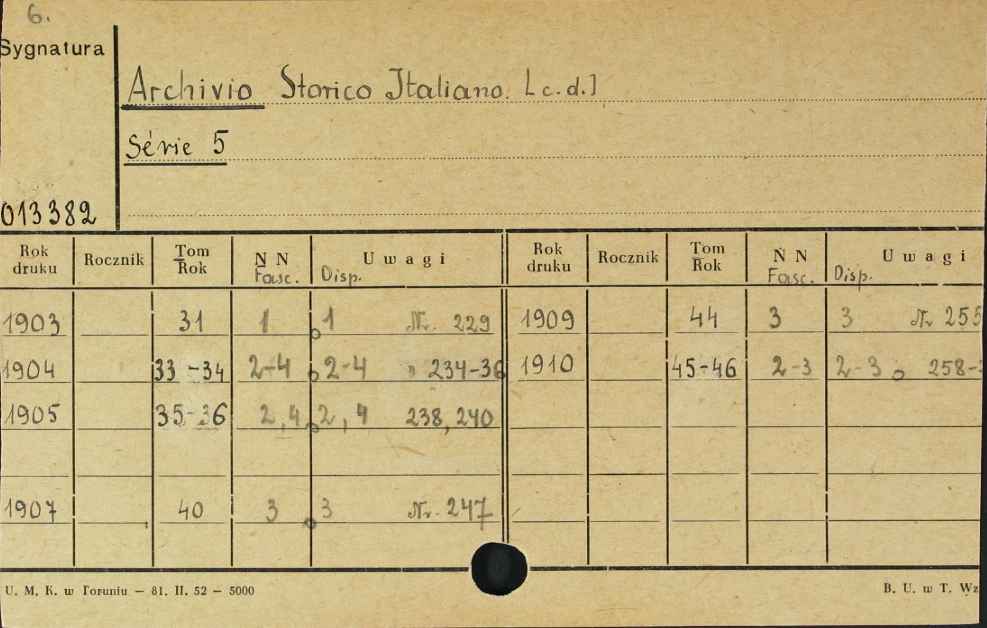 6.
Sygnatura
Archivio Storico Italiano. [c.d.]
Série 5
013382
Rok druku Rocznik Tom Rok N N Fasc. Uwagi Disp. Rok druku Rocznik Tom Rok N N Fasc. Uwagi Disp.
1903 31 1 1 Nr. 229 1909 44 3 3 Nr 255
1904 33-34 2-4 2-4 " 234-36 1910 45-46 2-3 2-3 258-
1905 35-36 2,4 2,4 238,240
1907 40 3 3 Nr. 247
U. M. K. w Toruniu — 81. II. 52 — 5000 B. U. w T. Wz